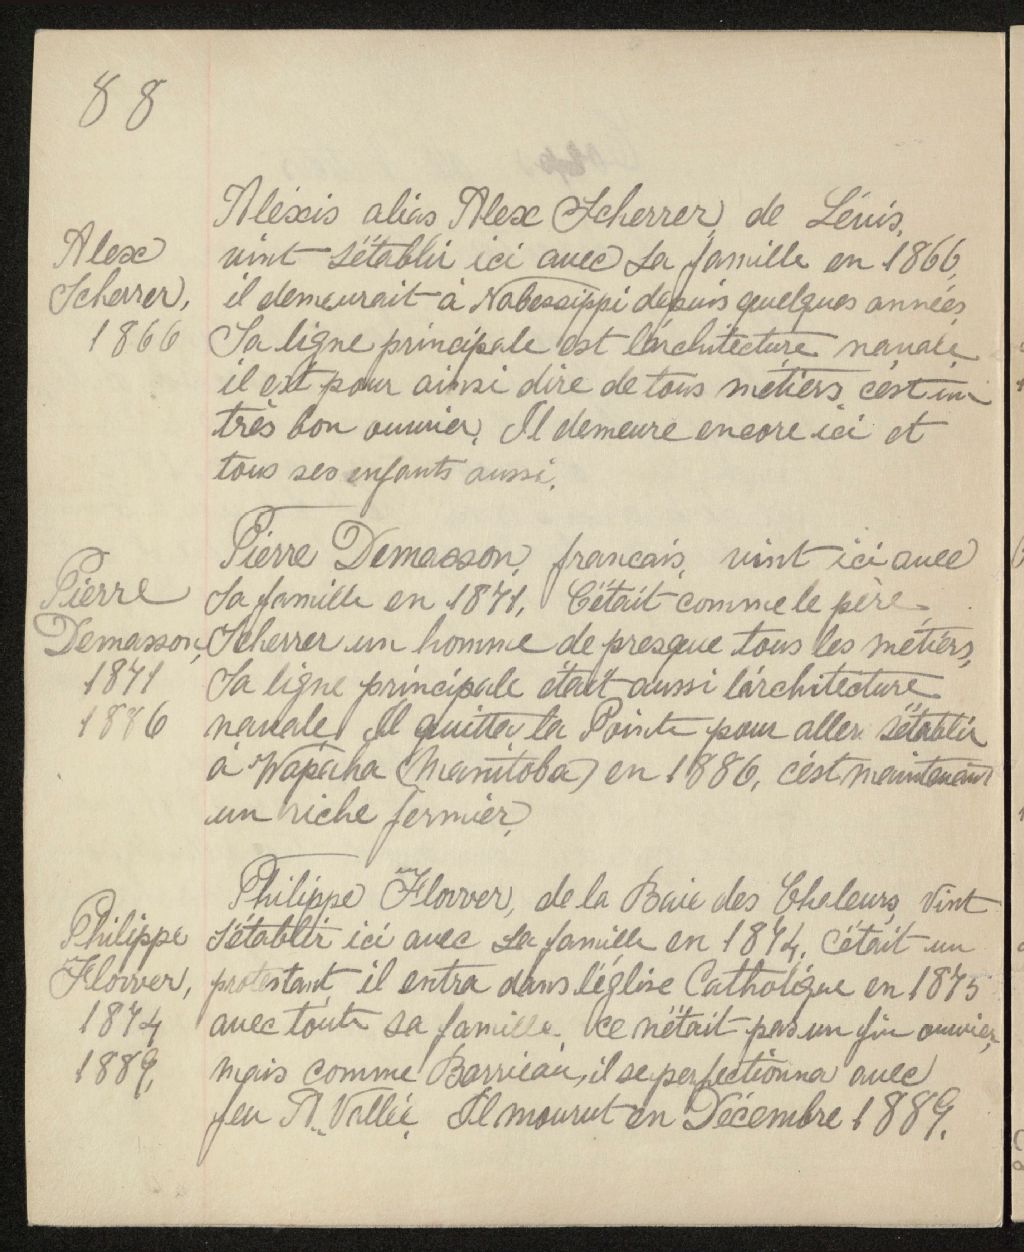 88
Alex
Scherrer,
1866
Aléxis alias Alex Scherrer, de Lévis,
vint s'établir ici avec sa famille en 1866,
il demeurait à Nabessippi depuis quelques années,
Sa ligne principale est l'architecture navale,
il est pour ainsi dire de tous métiers, c'est un
très bon ouvrier. Il demeure encore ici et
tous ses enfants aussi.
Pierre
Demasson,
1871
1886
Pierre Demasson, francais, vint ici avec
sa famille en 1871. C'était comme le père
Scherrer un homme de presque tous les métiers,
Sa ligne principale était aussi l'architecture
navale. Il quitta la Pointe pour aller s'établir
à Wapaha (Manitoba) en 1886, c'est maintenant
un riche fermier.
Philippe
Flower,
1874
1889,
Philippe Flower, de la Baie des Chaleurs, vint
s'établir ici avec sa famille en 1874. c'était un
protestant il entra dans l'église Catholique en 1875
avec toute sa famille. ce n'était pas un fin ouvrier,
mais comme Barrieau, il se perfectionna avec
feu A. Vallée. Il mourut en Décembre 1889.